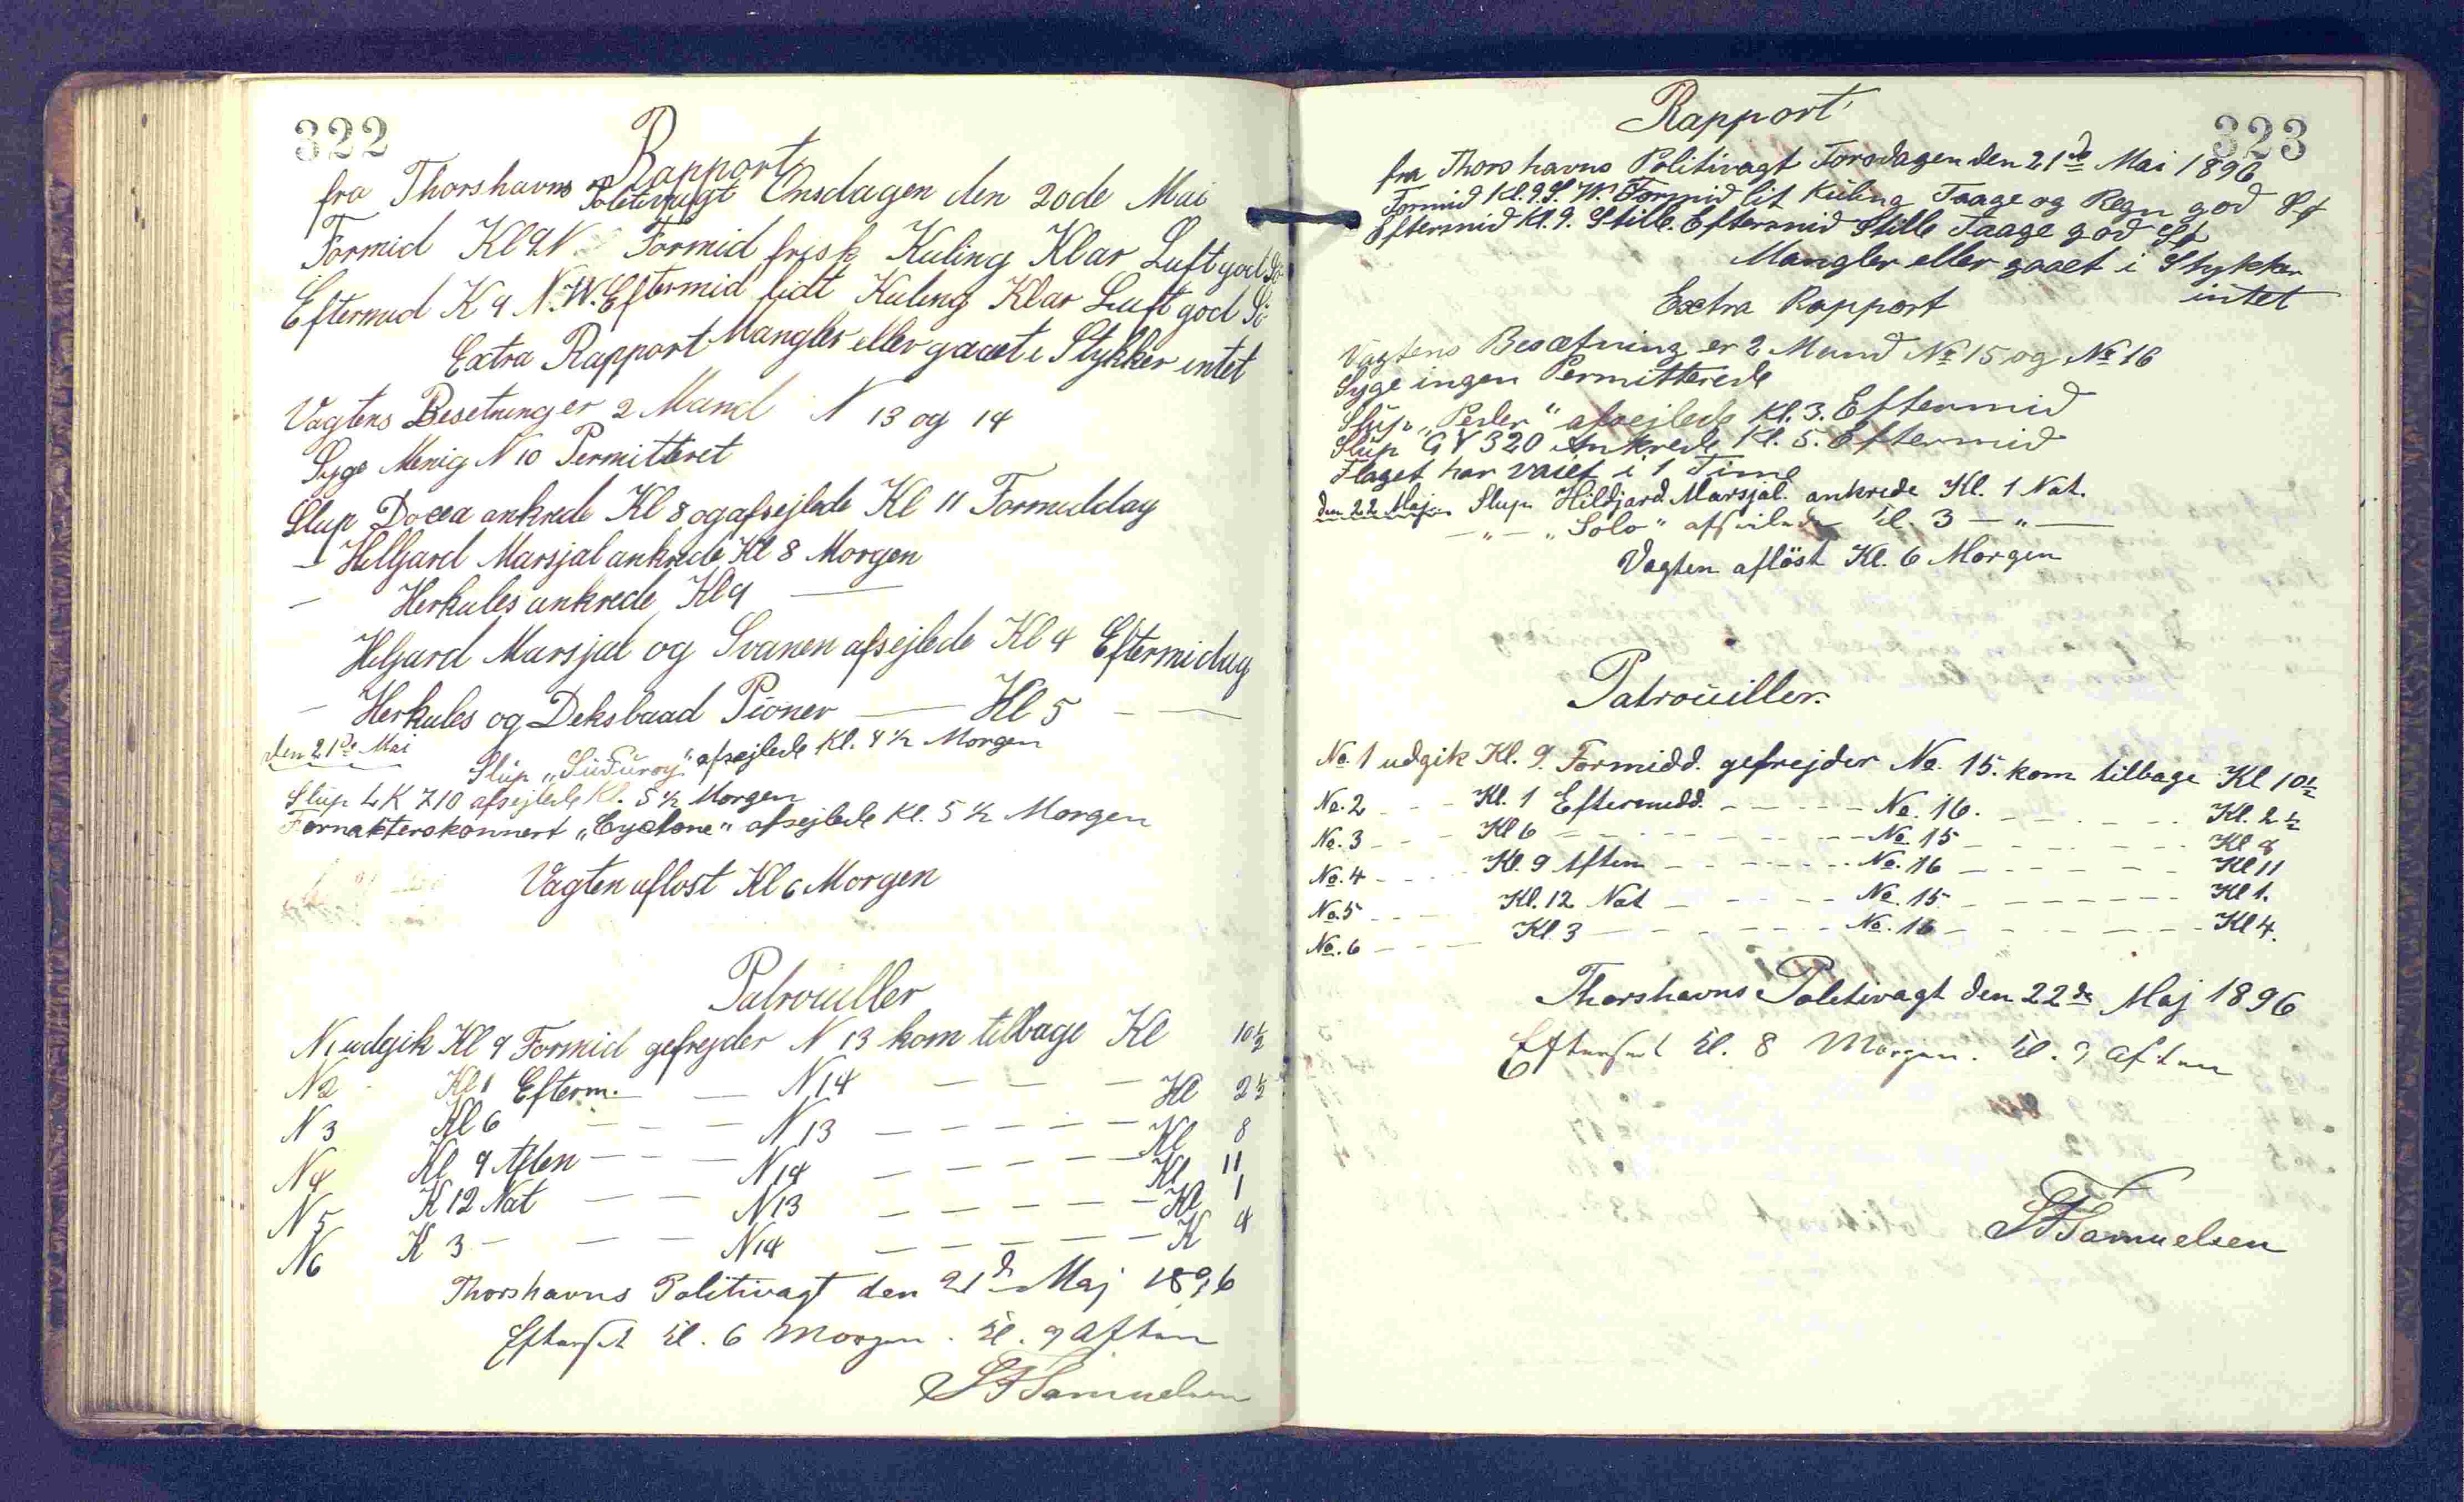 322
Rapport
fra Thorshavns Politivagt Onsdagen den 20de Mai
Formid Kl 9 N Formid frisk Kuling Klar Luft god Sö
Eftermid K 9 N.W. Eftermid lidt Kuling Klar Luft god Sö
Mangler eller gaaet i Stykker intet
Extra Rapport
Vagtens Besetning er 2 Mand N 13 og 14
Syge Menig N 10 Permitteret
Slup Docea ankrede Kl 8 og afsejlede Kl 11 Formidday
— Hilgard Marsjal ankrede Kl 8 Morgen
— Herkules ankrede Kl 9 —
Hilgard Marsjal og Svanen afsejlede Kl 4 Eftermidag
— Herkules og Deksbaad Pioner — Kl 5 — —
den 21de Mai
Slup „Suduroy" afsejlede Kl. 4 ½ Morgen
Slup LK 710 afsejlede Kl. 5 ½ Morgen
Fornakterskonnert „Cyclone" afsejlede Kl. 5 ½ Morgen
Vagten aflost Kl 6 Morgen
Patrouiller
N 1 udgik Kl 9 Formid gefrejder N 13 kom tilbage Kl 10½
N 2 Kl 1 Efterm. — N 14 — — — Kl 2½
N 3 Kl 6 — — — N 13 — — — — — Kl 8
N 4 Kl 9 Aften — — — N 14 — — — — — Kl 11
N 5 K 12 Nat — — N 13 — — — — — Kl 1
N 6 K 3 — — — N 14 — — — — — K 4
Thorshavns Politivagt den 21d Maj 1896
Efterset Kl. 6 Morgen. Kl. 9 Aften
SF Samuelsen
323
Rapport
fra Thorshavns Politivagt Torsdagen den 21de Mai 1896
Formid Kl. 9 S.W. Formid lit Kuling Taage og Regn god Sø
Eftermid Kl. 9. Stille. Eftermid Stille Taage god Sø
Mangler eller gaaet i Stykker
intet
Extra Rapport
Vagtens Besætning er 2 Mand No 15 og No 16
Syge ingen Permitterede
Slup „Peder" afsejlede Kl. 3. Eftermid
Slup GY 320 Ankrede Kl. 5. Eftermid
Flaget har vaiet i 1 Time
den 22 Maj Slup Hildjard Marsjal. ankrede Kl. 1 Nat.
— „ — „Solo" afseilede Kl. 3 — „ —
Vagten aflöst Kl. 6 Morgen
Patrouiller.
No. 1 udgik Kl. 9. Formidd. gefrejder No. 15. kom tilbage Kl 10½
No. 2 - - Kl. 1 Eftermidd. - - - - No. 16. - - - - - Kl. 2½
No. 3 - - Kl 6 - - - - - - No. 15 - - - - - Kl 8
No. 4 - - - Kl. 9 Aften - - - - - No. 16 - - - - - Kl 11
No. 5 - - - Kl. 12 Nat - - - - No. 15 - - - - - Kl 1.
No. 6 - - - Kl. 3 - - - - - - No. 16 - - - - - Kl 4.
Thorshavns Politivagt den 22de Maj 1896
Efterset Kl. 8 Morgen. Kl. 9 Aften
SF Samuelsen